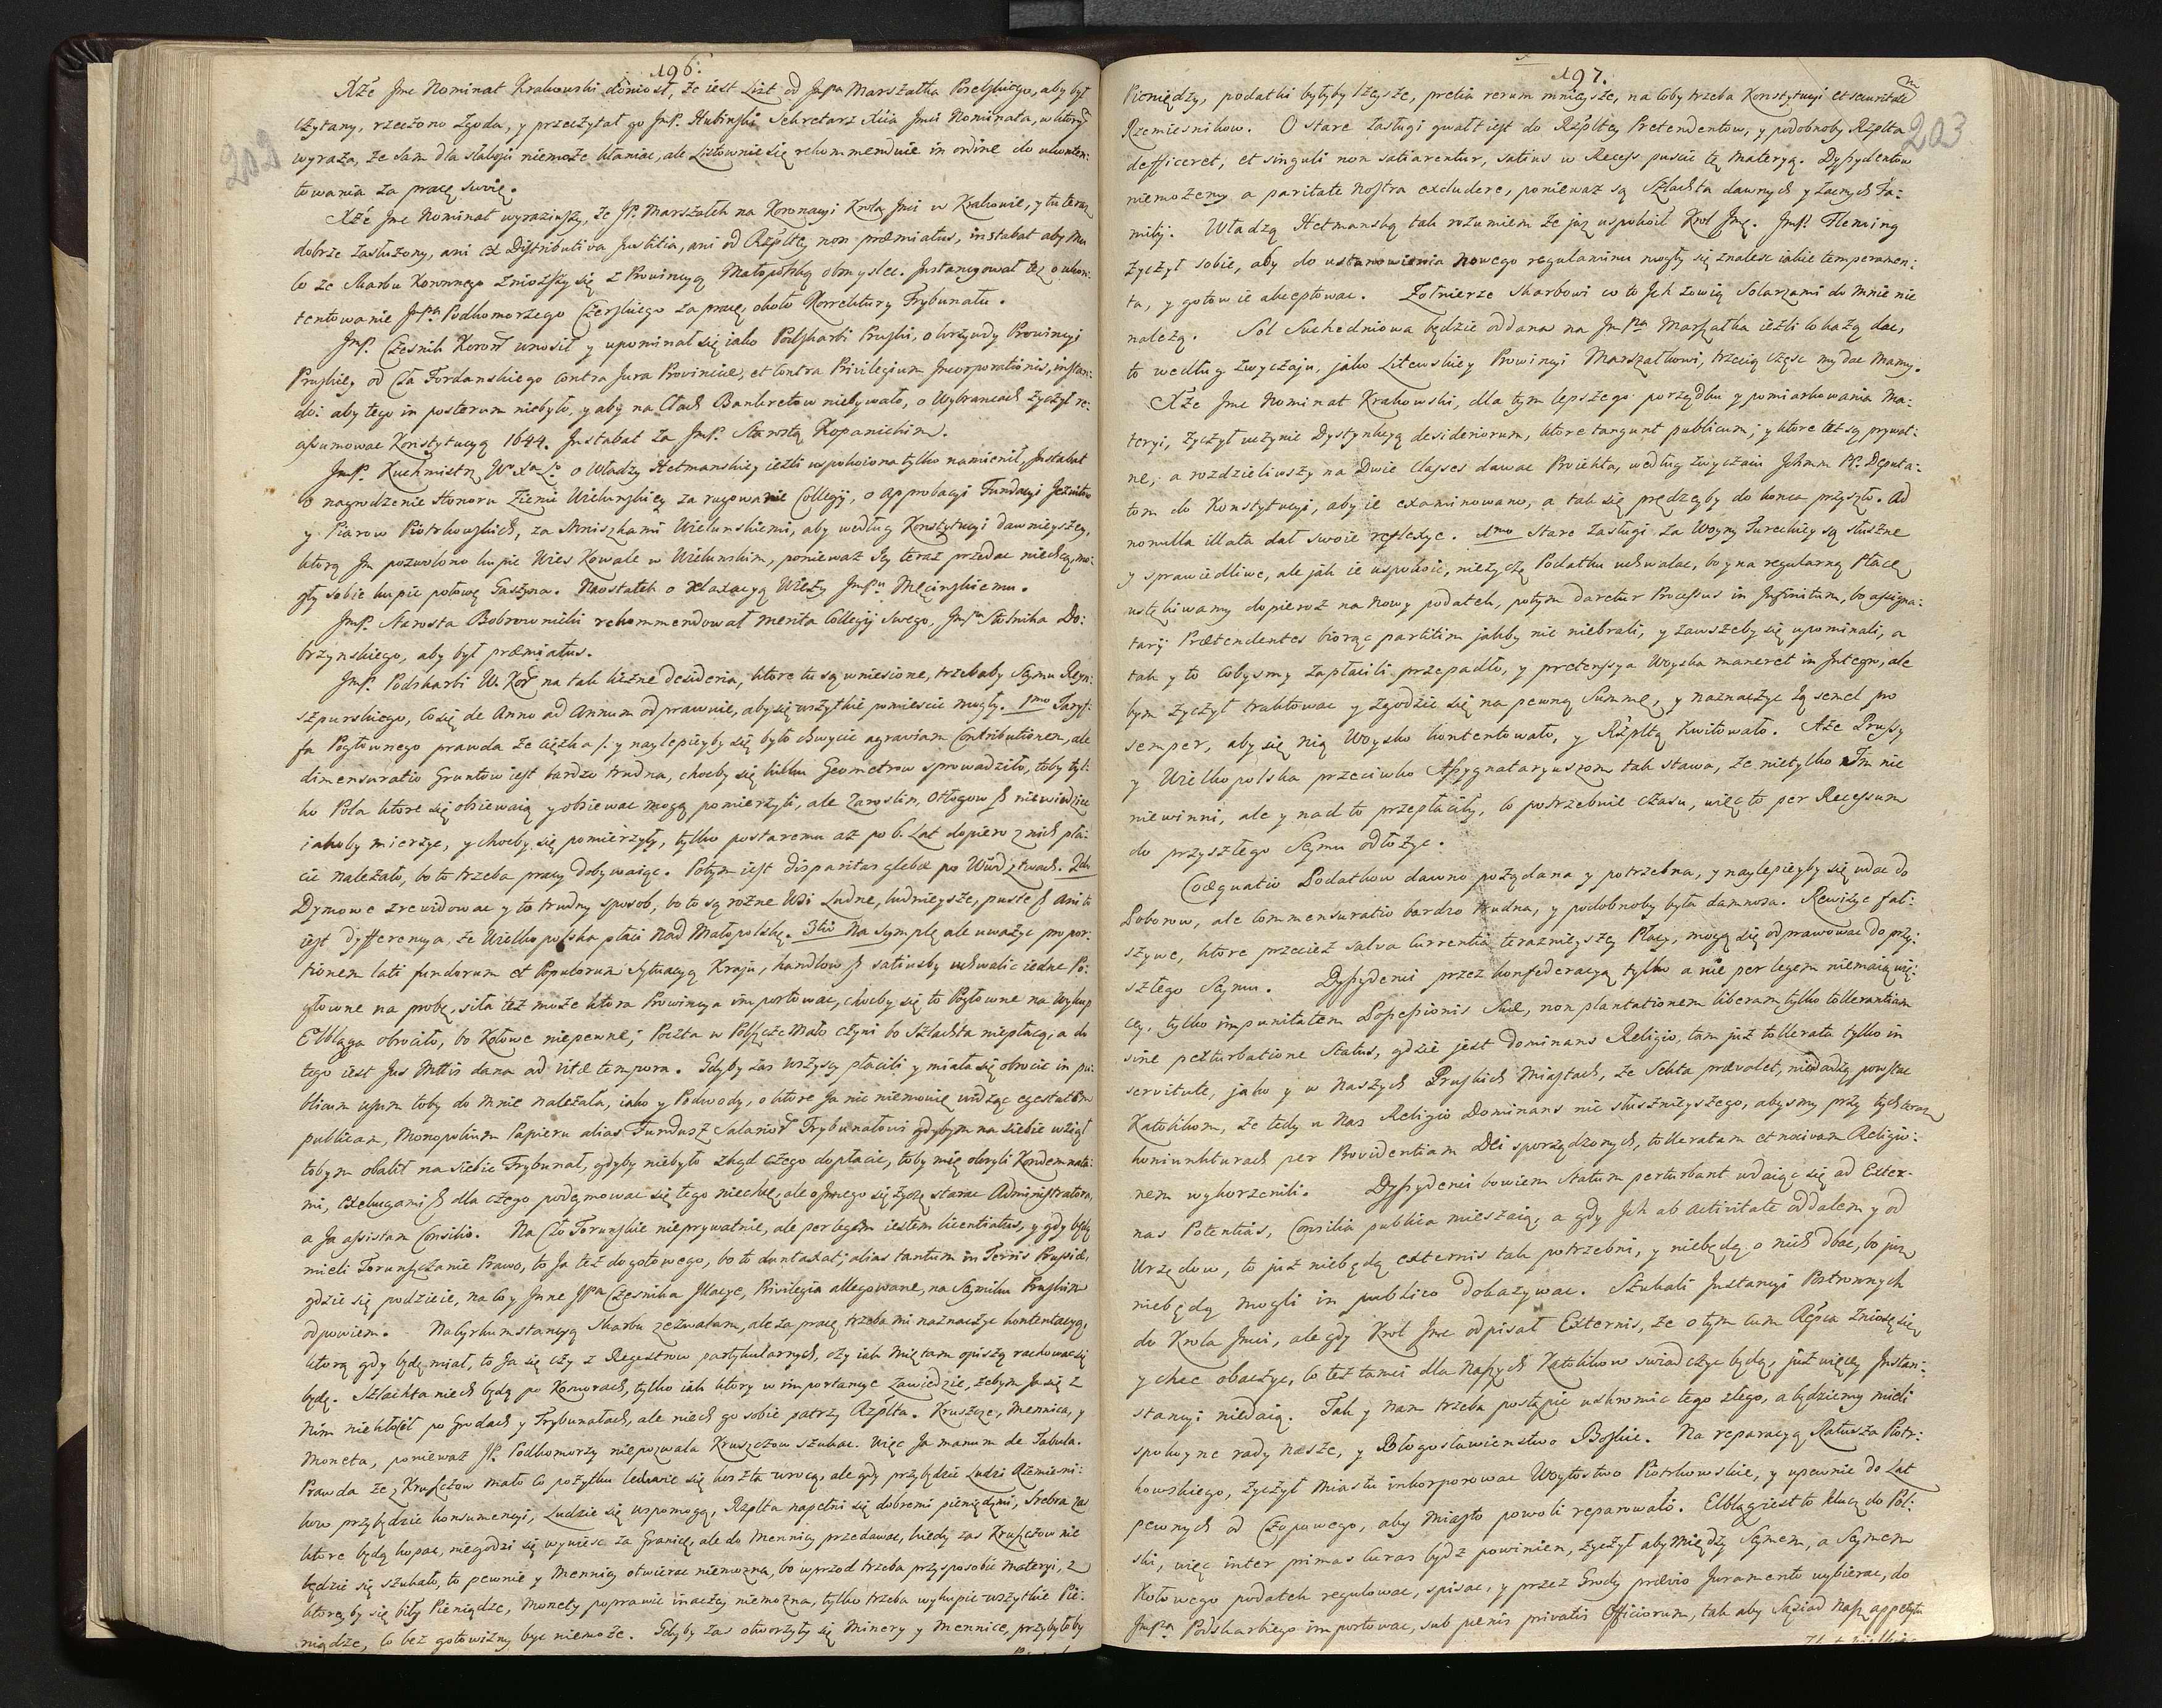 196.
202
Xże Jmć Nominat Krakowski doniosł, że iest List od JmPa Marszałka Poselskiego, aby był
czytany, rzeczono zgoda, y przeczytał go JmP. Hubinski Sekretarz Xcia Jmci Nominata, w ktorym
wyraża, że sam dla słabosci niemoże kłaniac, ale listownie się rekommenduie in ordine do ukonten:
towania za pracę swoię.
Xże Jmć Nominat wyraziwszy, że JP. Marszałek na Koronacyi Krola Jmci w Krakowie, y tu teraz
dobrze zasłużony, ani ex Distributiva Justitia, ani od Rzpltey non præmiatus, instabat aby mu
co ze Skarbu Koronnego zniozszy się z Prowincyą Małopolską obmyslec. Instancyował też o ukon:
tentowanie JmPa Podkomorzego Czerskiego za pracę, około Korrektury Trybunału.
JmP. Czesnik Koroñ wnosił y upominał się iako Podskarbi Pruski, o krzywdy Prowincyi
Pruskiey od Cła Fordanskiego contra Jura Provinciæ, et contra Privilegium Incorporationis, instan:
do: aby tego in posterum niebyło, y aby na Cłach Bankretow niebywało, o Wybrancach życzył re:
assumowac Konstytucyą 1644. Instabat za JmP. Starostą Kopanickim.
JmP. Kuchmistrz Wo Xa Lo o Władzy Hetmanskiey ieżli uspokoiona tylko namienił, Instabat
o nagrodzenie Honoru Ziemi Wielunskiey za rugowanie Collegij, o approbacyi Fundacyi Jezuitow
y Piarow Piotrkowskich, za Mniszkami Wielunskiemi, aby według Konstytucyi dawnieyszey,
ktorą Im pozwolono kupic Wies Kowale w Wielunskim, ponieważ Jey teraz przedac niechcą, mo:
gły sobie kupic połowę Gaszyna. Naostatek o relaxacyą Wieży JmPu Męcinskiemu.
JmP. Starosta Bobrownicki rekommendował merita Collegij swego, JmPa Stolnika Do:
brzynskiego, aby był præmiatus.
JmP. Podskarbi W. Kor na tak liczne desideria, ktore tu są wniesione, trzebaby Seymu Reyn:
szpurskiego, co się de Anno ad Annum odprawuie, aby się wszytkie pomiescic mogły. 1mo Taryf:
fa Pogłownego prawda że ciężka /: y naylepieyby się było chwycic agrariam Contributionem, ale
dimensuratio Gruntow iest bardzo trudna, choćby się kilku Geometrow sprowadziło, toby tyl:
ko Pola ktore się obsiewaią y obsiewac mogą pomierzyli, ale Zaroslin, Odłogow & niewiedziec
iakoby mierzyc, y choćby się pomierzyły, tylko postaremu aż po 6. Lat dopiero z nich pła:
cic należało, bo to trzeba pracy dobywaiąc. Potym iest disparitas glebæ po Wdztwach. 2do
Dymowe zrewidowac y to trudny sposob, bo to są rożne Wsi Ludne, ludnieysze, puste & Ani to
iest dyfferencya, że Wielkopolska płaci nad Małopolskę. 3tio Na symplę ale uważyc propor:
tionem lati fundorum et Populorum sytuacyą Kraju, handlow & satiusby uchwalic iedne Po:
głowne na probę, siła też może ktora Prowincya importowac, choćby się to Pogłowne na Wykup
Elbląga obrociło, bo Kołowe niepewne; Poczta w Polszcze mało czyni bo Szlachta niepłacą, a do
tego iest Jus Mttis dana ad vitæ tempora. Gdyby zas wszyscy płacili y miała się obrocic in pu:
blicum usum toby do mnie należała, iako y Podwody, o ktore Ja nic niemowię widząc egestatem
publicam, Monopolium Papieru alias Fundusz Salariow Trybunałowi gdybym na siebie wziął
tobym obalił na siebie Trybunał, gdyby niebyło zkąd czego dopłacic, toby mię okryli Kondemnata:
mi, exekucyami & dla czego podeymowac się tego niechcę, ale o Jnnego się życzę starac Administratora,
a Ja assistam Consilio. Na Cło Torunskie nieprywatnie, ale per legem iestem licentiatus, y gdy będą
mieli Torunczanie Prawo, to Ja też do gotowego, bo to duntaxat; alias tantum in Terris Prussiæ,
gdzie się podzieie, na co y Jnne JPa Czesnika Illacye, Privilegia allegowane, na Seymiku Pruskim
odpowiem. Na lyskumstancyą Skarbu zezwalam, ale za pracę trzeba mi naznaczyc kontentacyą,
ktorą gdy będę miał, to Ja się czy z Regestrow partykularnych, czy iak mię tam opiszą rachowac się
będę. Szlachta niech będą po Komorach, tylko iak ktory w importancye zawiedzie, żebym Ja się z
nim niekłocił po Grodach y Trybunałach, ale niech go sobie patrzy Rzplta. Kruszce, Mennica, y
Moneta, ponieważ JP. Podkomorzy niepozwala Kruszczow szukac. Więc Ja manum de Tabula.
Prawda że z Kruszczow mało co pożytku ledwie się koszta wrocą, ale gdy przybędzie Ludzi Rzemiesni:
kow przybędzie konsumencyi, Ludzie się wspomogą, Rzplta napełni się dobremi pieniędzmi, Srebra zas
ktore będą kopac, niegodzi się wywiesc za Granicę, ale do Mennicy przedawac, kiedy zas Kruszczow nie
będzie się szukało, to pewnie y Mennicy otwierac niemożna, bo wprzod trzeba przysposobic materyi, z
ktoreyby się biły Pieniądze, Monety poprawic inaczey niemożna, tylko trzeba wykupic wszytkie Pie:
niądze, co bez gotowizny byc niemoże. Gdyby zas otworzyły się Minery y Mennice, przybyłoby
197.
203
Pieniędzy, podatki byłyby lżeysze, pretia rerum mnieysze, na coby trzeba Konstytucyi et securitatem
Rzemiesnikow. O stare zasługi gwałt iest do Rzpltey Pretendentow, y podobnoby Rzplta
defficeret, et singuli non satiarentur, satius w Recess puscic tę materyą. Dyssydentow
niemożemy a paritate nostra excludere, ponieważ są Szlachta dawnych y zacnych Fa:
milij. Władzą Hetmanską tak rozumiem że już uspokoił Krol Jmć. JmP. Fleming
życzył sobie, aby do ustanowienia nowego regulaminu mogły się znalesc iakie temperamen:
ta, y gotow ie akceptowac. Żołnierze Skarbowi co to Jch zowią Solarzami do mnie nie
należą. Sol Suchedniowa będzie oddana na JmPa Marszałka ieżli co każą dac,
to według zwyczaju, jako Litewskiey Prowincyi Marszałkowi, trzecią częsc my dac mamy.
Xże Jmć Nominat Krakowski, dla tym lepszego porządku y pomiarkowania Ma:
teryi, życzył uczynic Dystynkcyą desideriorum, ktore tangunt publicum; y ktore też są prywat:
ne; a rozdzieliwszy na Dwie Classes dawac Proiekta, według zwyczaiu Jchmm PP. Deputa:
tom do Konstytucyi, aby ie examinowano, a tak się prędzeyby do konca przyszło. Ad
nonnulla illata dał swoie reflexye. 1mo Stare Zasługi za Woyny Tureckiey są słuszne
y sprawiedliwe, ale jak ie uspokoic, nieżyczę Podatku uchwalac, bo y na regularną Płacę
ustękiwamy dopieroż na nowy podatek, potym daretur Processus in Infinitum, bo assigna:
tarij Prætendentes biorąc partitim jakby nic niebrali, y zawszeby się upominali, a
tak y to cobysmy zapłacili przepadło, y pretensya Woyska maneret in Integro, ale
bym życzył traktowac y zgodzic się na pewną Summę, y naznaczyc Ją semel pro
semper, aby się nią Woysko kontentowało, y Rzpltą kwitowało. Aże Prussy
y Wielkopolska przeciwko Assygnataryuszom tak stawa, że nietylko Im nic
niewinni, ale y nad to przepłacili, co potrzebuie czasu, więc to per Recessum
do przyszłego Seymu odłożyc.
Coæquatio Podatkow dawno pożądana y potrzebna, y naylepieyby się udac do
Poborow, ale Commensuratio bardzo trudna, y podobnoby była damnosa. Rewizye fał:
szywe, ktore przecież salva Currentia terazniejszey Płacy, mogą się odprawowac do przy:
szłego Seymu. Dyssydenci przez konfederacyą tylko a nie per legem niemaią wię:
cey, tylko impunitatem Possessionis Suæ, non plantationem liberam, tylko tollerantiam
sine perturbatione Status, gdzie jest dominans Religio, tam już tollerata tylko in
servitute, jako y w naszych Pruskich Miastach, że Sekta prævalet, niedadzą powstac
Katolikom, że tedy u nas Religio Dominans nic słusznieyszego, abysmy przy tych teraz
koniunkturach per Providentiam Dei sporządzonych, tolleratam et nocivam Religio:
nem wykorzenili. Dyssydenci bowiem Statum perturbant udaiąc się ad Exter-
nas Potentias, Consilia publica mieszaią, a gdy Jch ab activitate oddalem y od
Urzędow, to już niebędą externis tak potrzebni, y niebędą o nich dbac, bo już
niebędą mogli in publico dokazywac. Szukali Instancyi Postronnych
do Krola Jmci, ale gdy Krol Jmć odpisał Externis, że o tym cum Repca zniosę się,
y chcę obaczyc, co też tamci dla naszych Katolikow swiadczyc będą, już więcey Instan:
stancyi niedaią. Tak y nam trzeba postąpic uskromic tego złego, a będziemy mieli
spokoyne rady nasze, y Błogosławienstwo Boskie. Na reparacyą Ratusza Piotr:
kowskiego, życzył Miastu inkorporowac Woytostwo Piotrkowskie, y upewnie do Lat
pewnych od Czopowego, aby Miasto powoli reparowało. Elbląg iest to klucz do Pol:
ski, więc inter primas curas bydz powinien, życzył aby między Seymem, a Seymem
Kołowego podatek regulowac, spisac, y przez Grody prævio Juramento wybierac, do
JmPa Podskarbiego importowac, sub penis privatis Officiorum, tak aby Sąsiad nasz appetytu